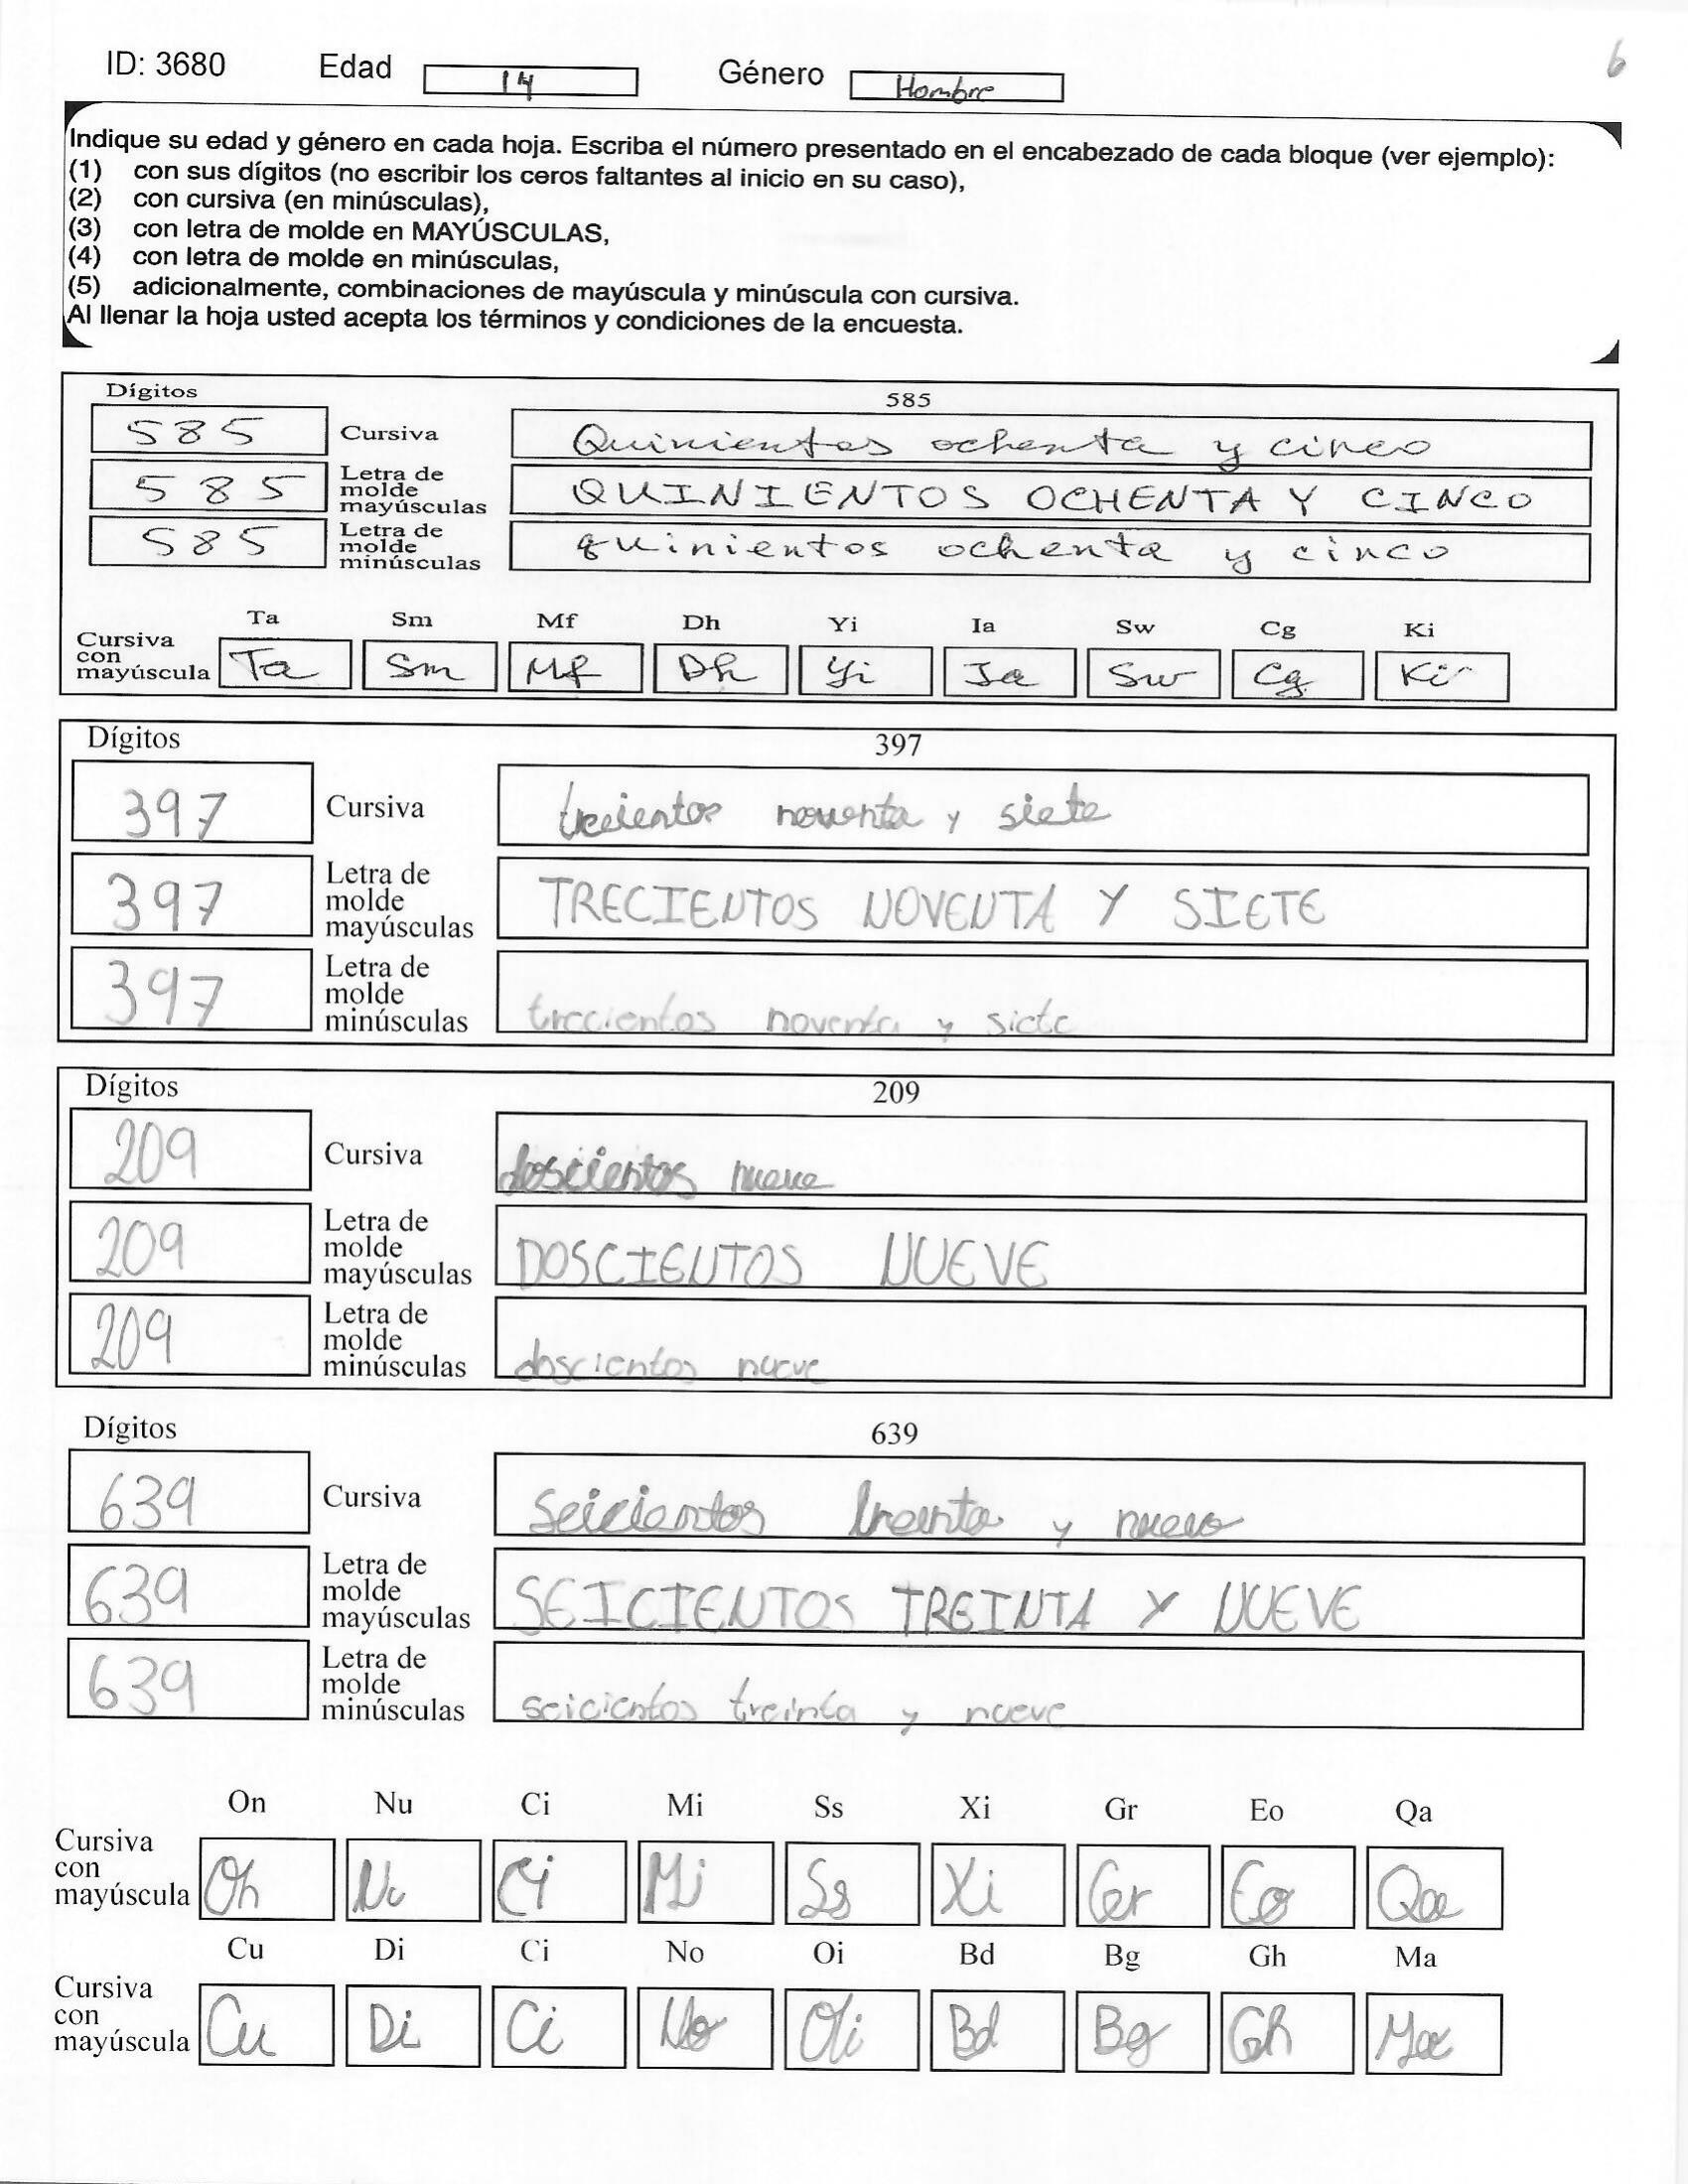 ID: 3680 Edad 14 Género Hombre 6
Indique su edad y género en cada hoja. Escriba el número presentado en el encabezado de cada bloque (ver ejemplo):
(1) con sus dígitos (no escribir los ceros faltantes al inicio en su caso),
(2) con cursiva (en minúsculas),
(3) con letra de molde en MAYÚSCULAS,
(4) con letra de molde en minúsculas,
(5) adicionalmente, combinaciones de mayúscula y minúscula con cursiva.
Al llenar la hoja usted acepta los términos y condiciones de la encuesta.
Dígitos 585
585 Cursiva Quinientos ochenta y cinco
585 Letra de molde mayúsculas QUINIENTOS OCHENTA Y CINCO
585 Letra de molde minúsculas quinientos ochenta y cinco
Ta Sm Mf Dh Yi Ia Sw Cg Ki
Cursiva con mayúscula Ta Sm Mf Dh Yi Ia Sw Cg Ki
Dígitos 397
397 Cursiva treientos noventa y siete
397 Letra de molde mayúsculas TRECIENTOS NOVENTA Y SIETE
397 Letra de molde minúsculas trecientos noventa y siete
Dígitos 209
209 Cursiva doscientos nueve
209 Letra de molde mayúsculas DOSCIENTOS NUEVE
209 Letra de molde minúsculas doscientos nueve
Dígitos 639
639 Cursiva seicientos treinta y nueve
639 Letra de molde mayúsculas SEICIENTOS TREINTA Y NUEVE
639 Letra de molde minúsculas seicientos treinta y nueve
On Nu Ci Mi Ss Xi Gr Eo Qa
Cursiva con mayúscula On Nu Ci Mi Ss Xi Gr Eo Qa
Cu Di Ci No Oi Bd Bg Gh Ma
Cursiva con mayúscula Cu Di Ci No Oi Bd Bg Gh Ma